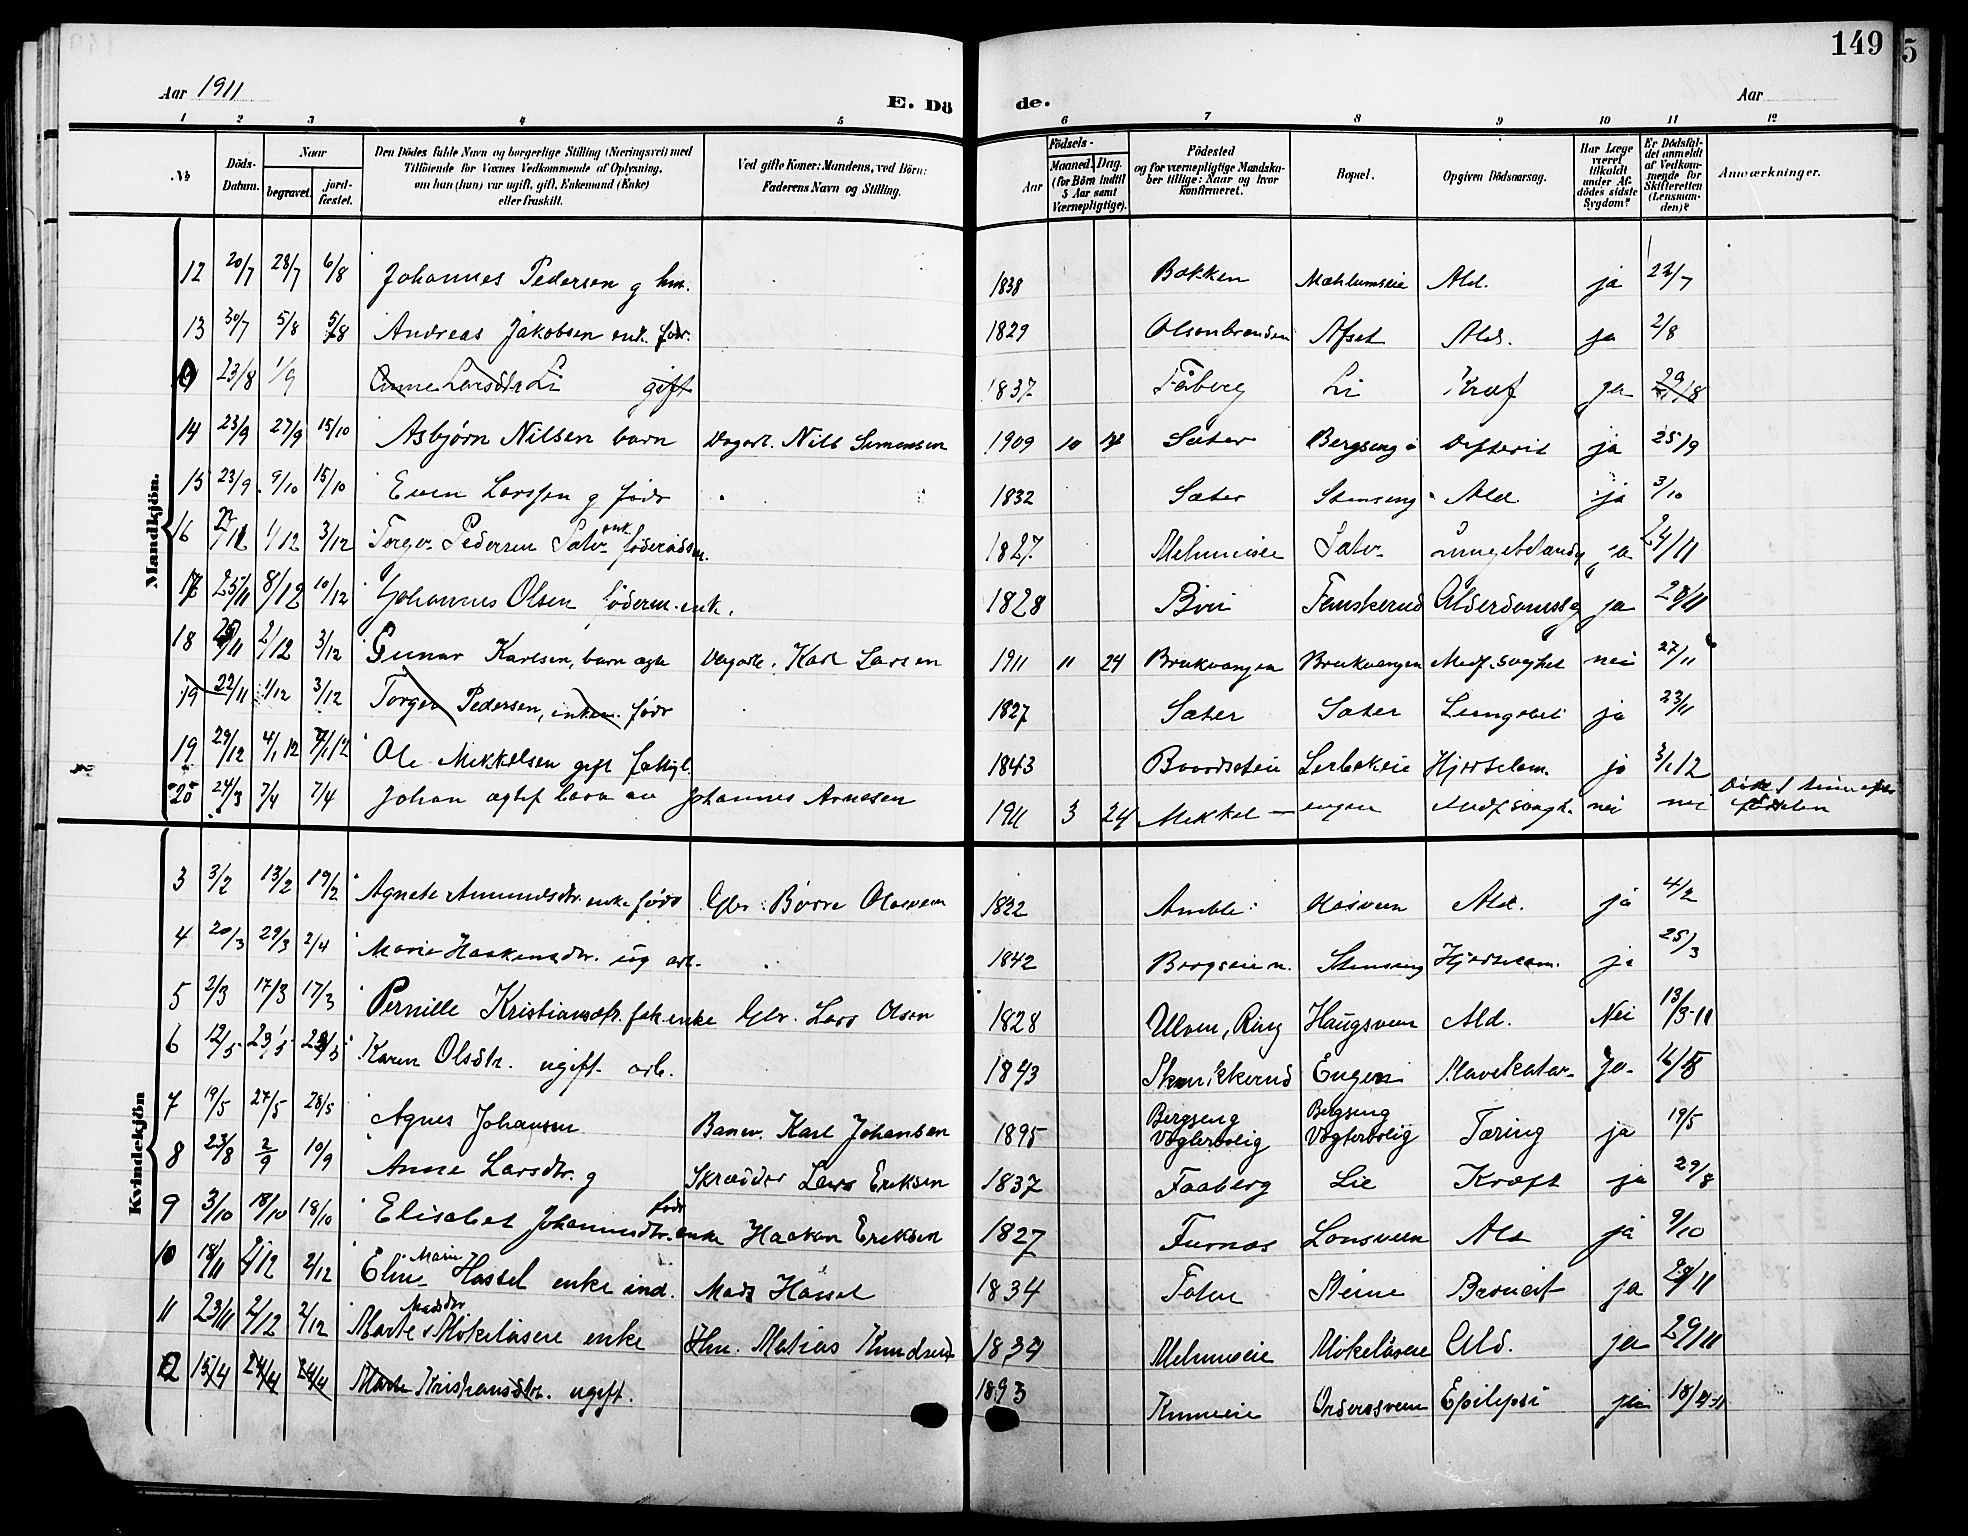 149
5
Aar 1911
E. Dö
de.
Aar
1 2 3 4 5 6 7 8 9 10 11 12
№
Döds-Datum.
Naar
begravet.
jord-fæstet.
Den Dödes fulde Navn og borgerlige Stilling (Næringsvei) med
Tilföiende for Voxnes Vedkommende af Oplysning,
om han (hun) var ugift, gift, Enkemand (Enke)
eller fraskilt.
Ved gifte Koner: Mandens, ved Börn:
Faderens Navn og Stilling.
Födsels-
Aar
Maaned. Dag.
(for Börn indtil 5 Aar samt Værnepligtige).
Födested
og for værnepligtige Mandskaber tillige: Naar og hvor konfirmeret.
Bopæl.
Opgiven Dödsaarsag.
Har Læge været tilkaldt under Afdödes sidste Sygdom?
Er Dödsfaldet anmeldt af Vedkommende for Skifteretten (Lensmanden)?
Anmærkninger.
Mandkjön.
12 20/7 28/7 6/8 Johannes Pedersen g hm. 1838 Bakken Mæhlumseie Ald. ja 22/7
13 30/7 5/8 5/8 Andreas Jakobsen enk. födr. 1829 Olsenbranden Afset Ald. ja 2/8
23/8 1/9 Anne Larsdtr Li gift 1837 Fåberg Li Kræf ja 29/8
14 23/9 27/9 15/10 Asbjørn Nilsen barn Dagarb. Nils Simensen 1909 10 Sæter Bergseng Difterit ja 25/9
15 23/9 9/10 15/10 Even Larssen g födr 1832 Sæter Stenseng Ald ja 3/10
16 22/11 1/12 3/12 Torger Pedersen Sæter enk. föderådsm. 1827 Melumseie Sæter Lungebetændg ja 24/11
17 25/11 8/12 10/12 Johannes Olsen föderm. enk. 1828 Biri Femskerud Alderdomssvag ja 28/11
18 2/12 3/12 Gunar Karlsen, barn ægte Dagarb. Karl Larsen 1911 11 24 Brukvangen Brukvangen Medf. svaghet nei 27/11
19 22/11 1/12 3/12 Torger Pedersen, enkem. födr 1827 Sæter Sæter Lungebet ja 23/11
19 29/12 4/1 12 7/1 12 Ole Mikkelsen gift fattigl. 1843 Baardseteie Lerbækeie Hjertelam. ja 3/1 12
20 24/3 7/4 7/4 Johan ægtef barn av Johannes Arnesen 1911 3 24 Mikkel — engen Medf svagh. nei nei Döde 1 time efter födselen
Kvindekjön
3 3/2 13/2 19/2 Agnete Amundsdtr. enke födr Gbr. Börre Olasveen 1822 Amble Olasveen Ald. ja 4/2
4 20/3 29/3 2/4 Marie Haakensdtr. ug arb. 1842 Bergseie n. Stenseng Hjertelam. ja 25/3
5 2/3 17/3 17/3 Pernille Kristiansdtr. fat. enke Gbr. Lars Olsen 1828 Ulven, Ring Haugsveen Ald. Nei 13/3-11
6 12/5 23/5 28/5 Karen Olsdtr. ugift arb. 1843 Skrukkerud Engen Mavekatar Ja 16/5
7 19/5 27/5 28/5 Agnes Johansen Banev. Karl Johansen 1895 Bergseng Vogterbolig Bergseng Vogterbolig Tæring ja 19/5
8 23/8 2/9 10/9 Anne Larsdtr. g Skrædder Lars Eriksen 1837 Faaberg Lie Kræft ja 29/8
9 3/10 18/10 18/10 Elisabet Johannesdtr. födr enke Haakon Eriksen 1827 Furnes Lonsveen Ald ja 9/10
10 18/11 2/12 2/12 Eline Marie Hassel enke ind. Mads Hassel 1834 Toten Steine Bronkit ja 28/11
11 23/11 2/12 2/12 Marte Madsdtr Mökelåseie enke Hm. Matias Knudsen 1834 Melumseie Mökelåseie Ald. ja 29/11
12 15/4 24/4 24/4 Marte Kristiansdtr. ugift. 1893 Kinneeie Onserosveen Epilepsi ja 18/4-11